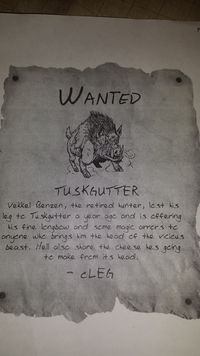 WANTED
TUSKGUTTER
Vekkel Benzen, the retired hunter, lost his
leg to Tuskgutter a year ago and is offering
his fine longbow and some magic arrows to
anyone who brings him the head of the vicious
beast. He'll also share the cheese he's going
to make from its head.
- cLEG